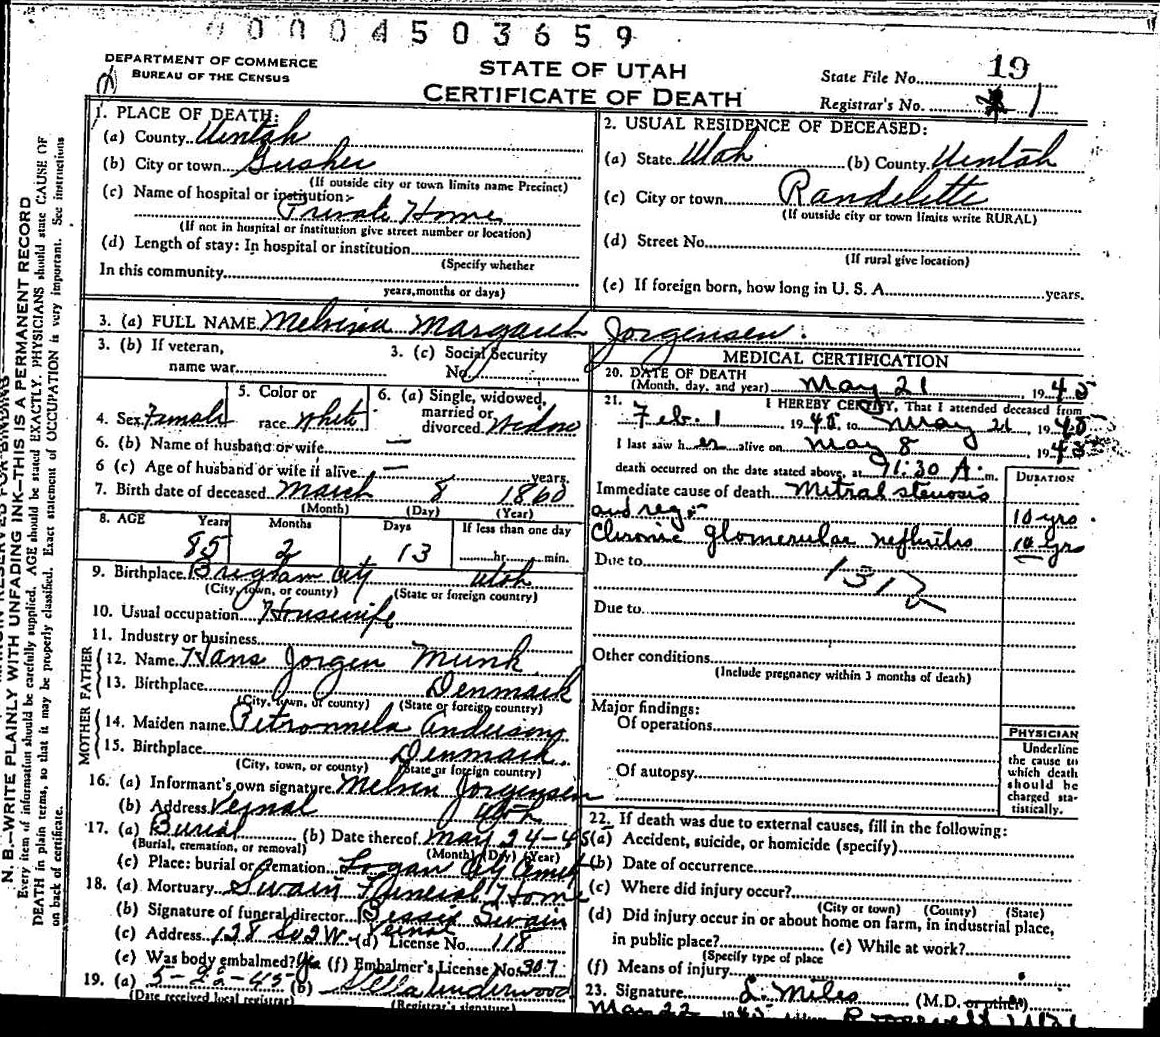 00004503659
DEPARTMENT OF COMMERCE
BUREAU OF THE CENSUS
STATE OF UTAH
CERTIFICATE OF DEATH
State File No. 19
Registrar's No. 1
N. B.—WRITE PLAINLY WITH UNFADING INK—THIS IS A PERMANENT RECORD
Every item of information should be carefully supplied. AGE should be stated EXACTLY. PHYSICIANS should state CAUSE OF
DEATH in plain terms, so that it may be properly classified. Exact statement of OCCUPATION is very important. See instructions
on back of certificate.
1. PLACE OF DEATH:
(a) County Uintah
(b) City or town Gusher
(If outside city or town limits name Precinct)
(c) Name of hospital or institution:
Private Home
(If not in hospital or institution give street number or location)
(d) Length of stay: In hospital or institution
(Specify whether
In this community
years, months or days)
2. USUAL RESIDENCE OF DECEASED:
(a) State Utah (b) County Uintah
(c) City or town Randelette
(If outside city or town limits write RURAL)
(d) Street No.
(If rural give location)
(e) If foreign born, how long in U. S. A. years.
3. (a) FULL NAME Melvina Margaret Jorgensen
3. (b) If veteran,
name war
3. (c) Social Security
No.
4. Sex Female
5. Color or
race White
6. (a) Single, widowed,
married or
divorced Widow
6. (b) Name of husband or wife —
6 (c) Age of husband or wife if alive — years.
7. Birth date of deceased March 8 1860
(Month) (Day) (Year)
8. AGE Years Months Days If less than one day
85 2 13 hr. min.
9. Birthplace Brigham City Utah
(City, town, or county) (State or foreign country)
10. Usual occupation Housewife
11. Industry or business
FATHER
12. Name Hans Jorgen Munk
13. Birthplace Denmark
(City, town, or county) (State or foreign country)
MOTHER
14. Maiden name Petronnela Anderson
15. Birthplace Denmark
(City, town, or county) (State or foreign country)
16. (a) Informant's own signature Melvin Jorgensen
(b) Address Vernal Utah
17. (a) Burial (b) Date thereof May 24-45
(Burial, cremation, or removal) (Month) (Day) (Year)
(c) Place: burial or cremation Logan City Cemet
18. (a) Mortuary Swain Funeral Home
(b) Signature of funeral director Bessie Swain
(c) Address 138 So 2 W. Vernal (d) License No. 118
(e) Was body embalmed? Yes (f) Embalmer's License No. 307
19. (a) 5-22-45 (b) Stella Underwood
(Date received local registrar) (Registrar's signature)
MEDICAL CERTIFICATION
20. DATE OF DEATH
(Month, day, and year) May 21 1945
21. I HEREBY CERTIFY, That I attended deceased from
Feb. 1 1945 to May 21, 1945
I last saw her alive on May 8 1945
death occurred on the date stated above, at 30 A. m.
DURATION
Immediate cause of death Mitral stenosis
and reg. 10 yrs.
Chronic glomerular nefhritis 10 yrs
Due to
Due to
Other conditions
(Include pregnancy within 3 months of death)
Major findings:
Of operations
Of autopsy
PHYSICIAN
Underline
the cause to
which death
should be
charged sta-
tistically.
22. If death was due to external causes, fill in the following:
(a) Accident, suicide, or homicide (specify)
(b) Date of occurrence
(c) Where did injury occur?
(City or town) (County) (State)
(d) Did injury occur in or about home on farm, in industrial place,
in public place? (e) While at work?
(Specify type of place
(f) Means of injury
23. Signature L. Miles (M.D. or other)
May 22 1945